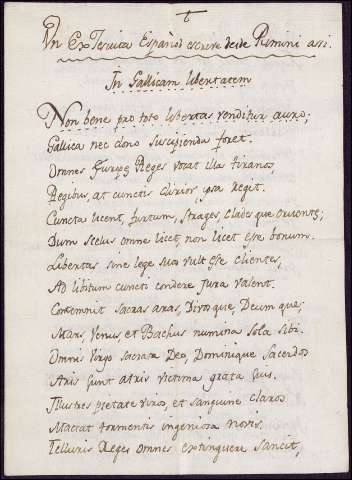 t
Un Ex Jesuita Español escrive desde Rimini assi.
In Gallicam libertatem
Non bene pro toto libertas venditur auro;
Gallica nec dono suscipienda foret.
Omnes Reges vocat illa tiranos,
Regibus, at cunctis dirior ipsa Regit.
Cuncta licent, furtum, strages, cladesque cruentę;
Dum scelus omne licet, non licet esse bonum.
Libertas sine lege suos vult esse clientes,
Ad libitum cuncti condere jura valent.
Contemnit sacras aras, Divosque, Deumque;
Mars, Venus, et Bachus numina sola sibi.
Omnis Virgo sacrata Deo, Dominique Sacerdos
Aris sunt atris victima grata suis.
Illustres pietate viros, et sanguine claros
Mactat tormentis ingeniosa novis.
Telluris Reges omnes extinguere sancit,